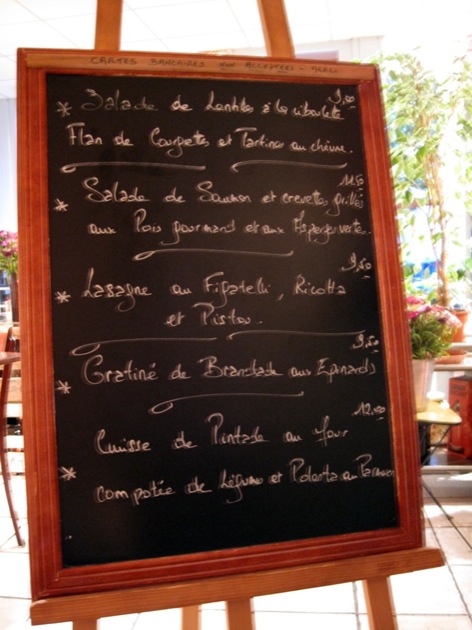 CARTES BANCAIRES NON ACCEPTEES - MERCI
* Salade de Lentilles à la ciboulette 9,00
Flan de Courgettes et Tartines au chèvre.
11,50
* Salade de Saumon et crevettes grillés
aux Pois gourmand et aux Asperges verte.
9,50
* Lasagne au Figatelli, Ricotta
et Pistou.
9,50
* Gratiné de Brandade aux Epinards
12,00
Cuisse de Pintade au four
* compotée de Légumes et Polenta au Parmesan